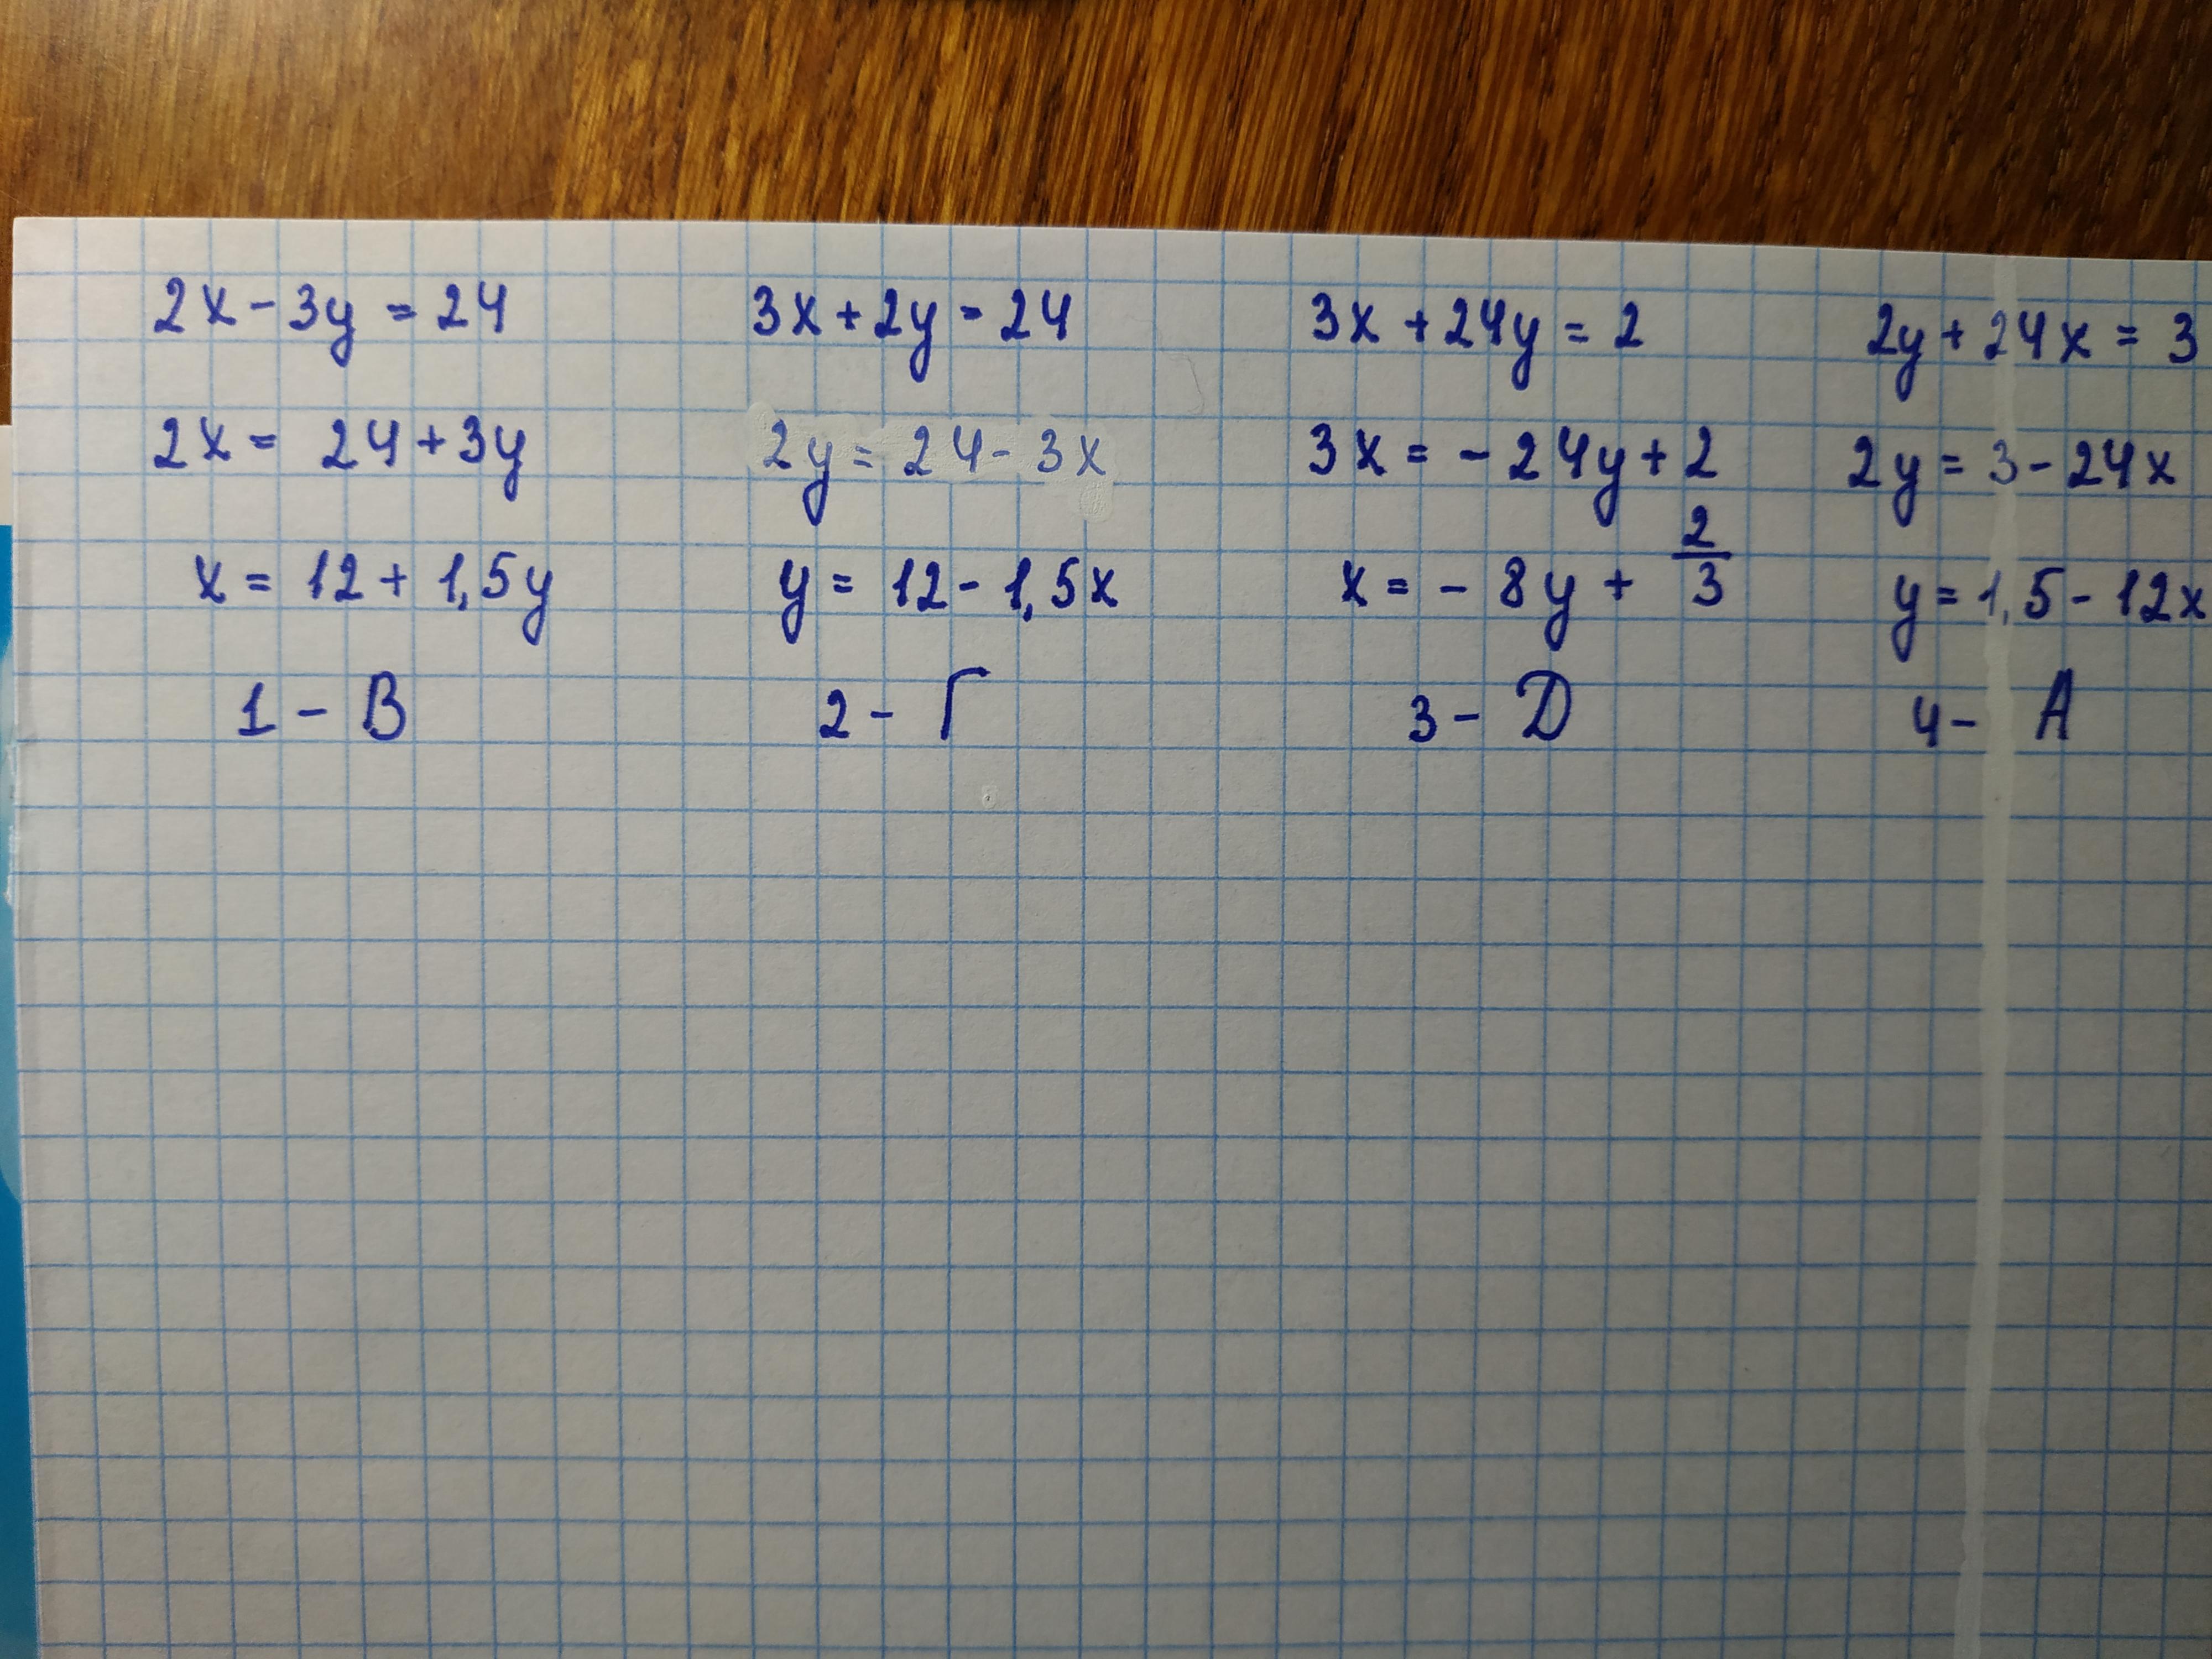 2x - 3y = 24
2x = 24 + 3y
x = 12 + 1,5y
1 - В
3x + 2y = 24
2y = 24 - 3x
y = 12 - 1,5x
2 - Г
3x + 24y = 2
3x = - 24y + 2
x = - 8y + 2/3
3 - D
2y + 24x = 3
2y = 3 - 24x
y = 1,5 - 12x
4 - А